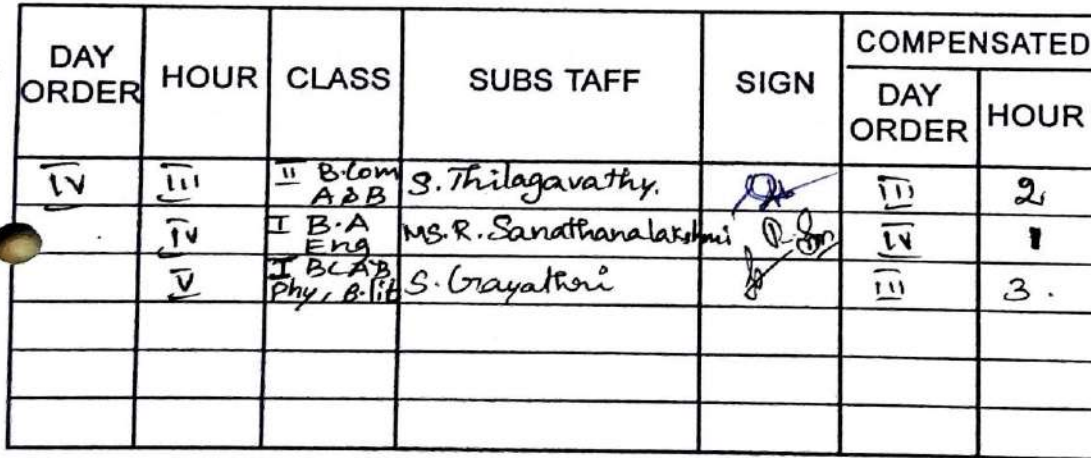 DAY ORDER HOUR CLASS SUBS TAFF SIGN COMPENSATED
DAY ORDER HOUR
IV III II B.Com A & B S. Thilagavathy. III 2
IV I B.A Eng MS. R. Sanathanalakshmi IV 1
V I BC AB, Phy, B.lit S. Gayathri III 3.